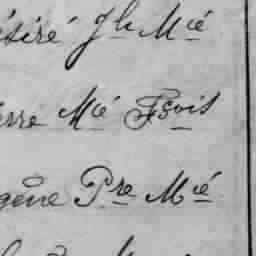 ésiré Jh Mié
erre Mié Fsois
gêne Pre Mié